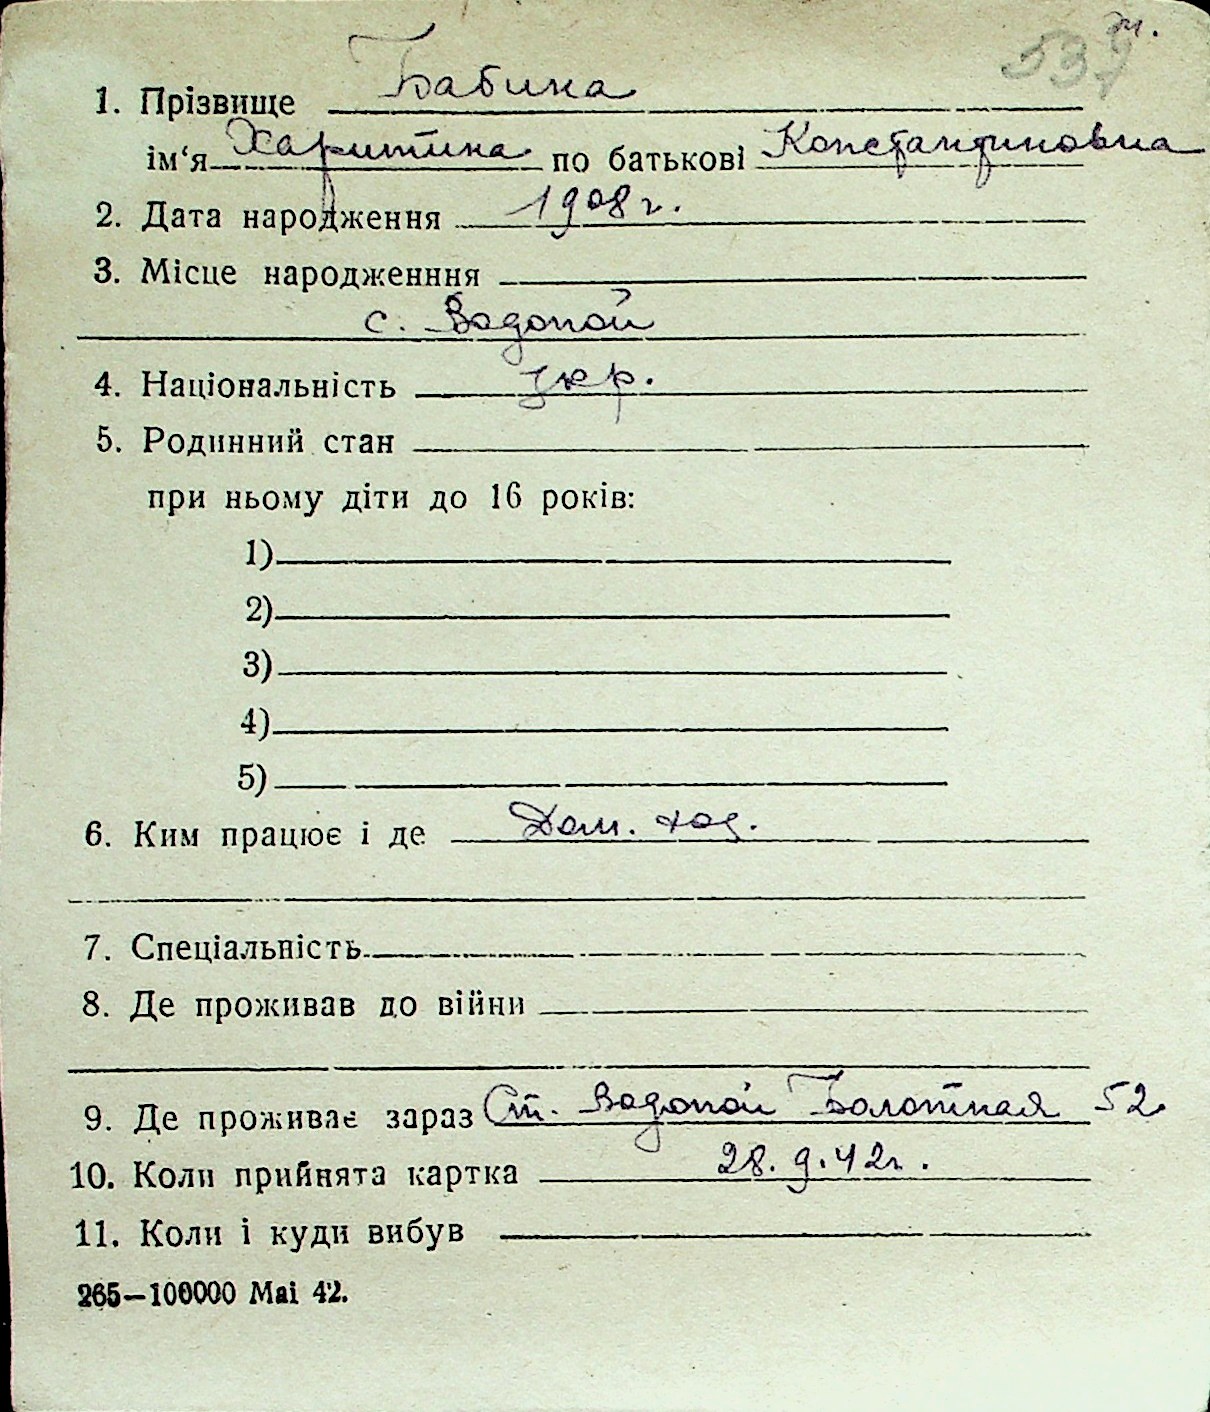 ж.
1. Прізвище Бабина
ім‘я Харитина по батькові Константиновна
2. Дата народження 1908 г.
3. Місце народженння
с. Водопой
4. Національність укр.
5. Родинний стан
при ньому діти до 16 років:
1)
2)
3)
4)
5)
6. Ким працює і де Дом. хоз.
7. Спеціальність
8. Де проживав до війни
9. Де проживає зараз Ст. Водопой Болотная 52
10. Коли прийнята картка 28.9.42 г.
11. Коли і куди вибув
265—100000 Mai 42.